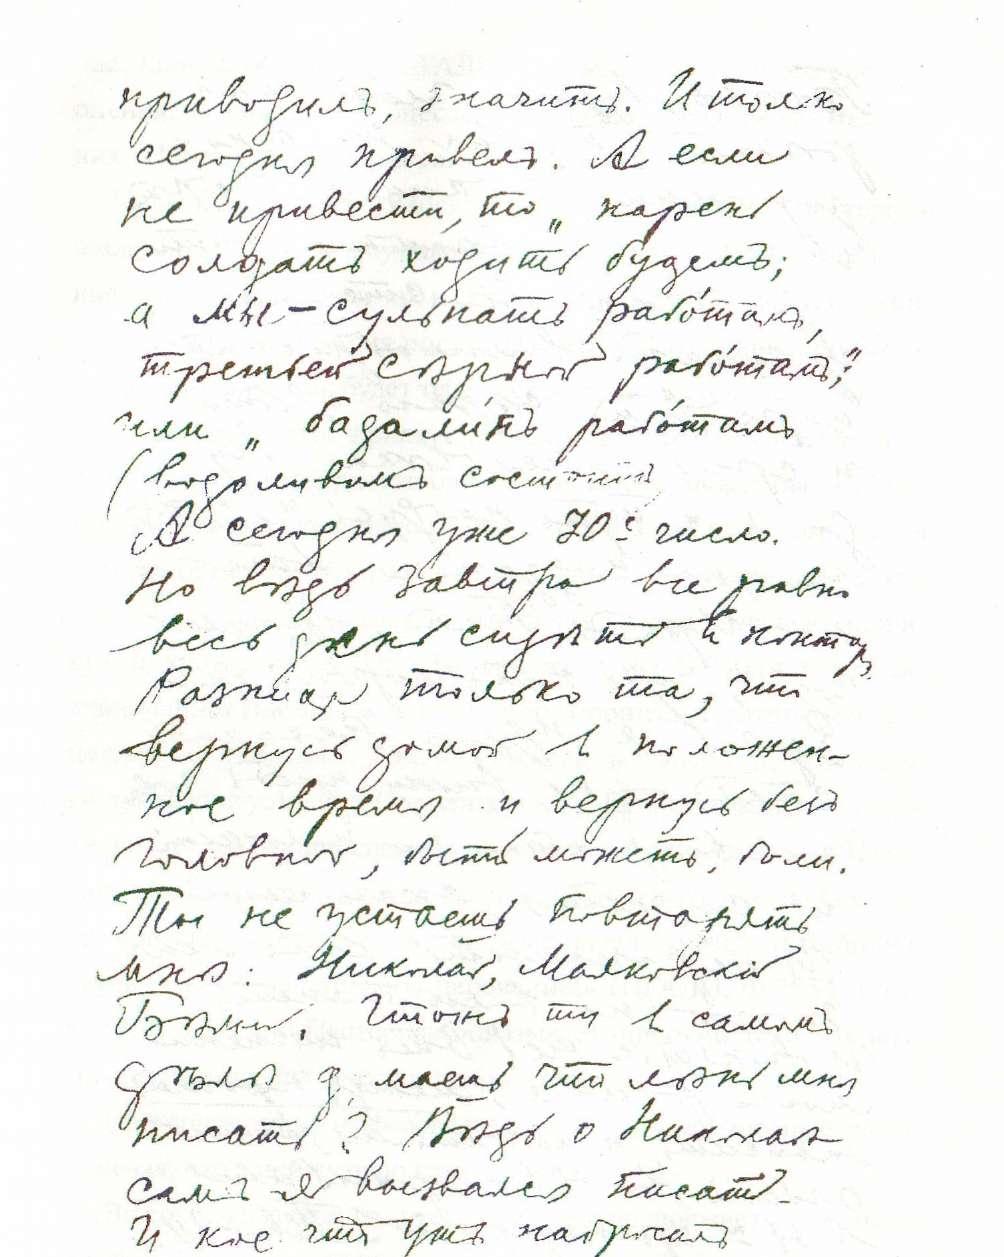 приводилъ, значитъ. И только
сегодня привелъ. А если
не привести, то „ парень
солдатъ ходить будемъ;
а мы – сульпатъ работамъ,
третьей сѣрной работамъ;"
или „ бадалинъ работамъ
(водоливомъ состоитъ
А сегодня уже 30е число.
Но вѣдь завтра все равно
весь день сидѣть в контор.
Разница только та, что
вернусь домой в положен-
ное время и вернусь безъ
головной, быть можетъ, боли.
Ты не устаешь повторять
мнѣ: Николай, Маяковскій
Бѣлый. Чтожъ ты в самомъ
дѣлѣ думаешь что лѣнь мнѣ
писать? Вѣдь о Николаѣ
самъ я вызвался писать.
И кое что ужъ набросилъ